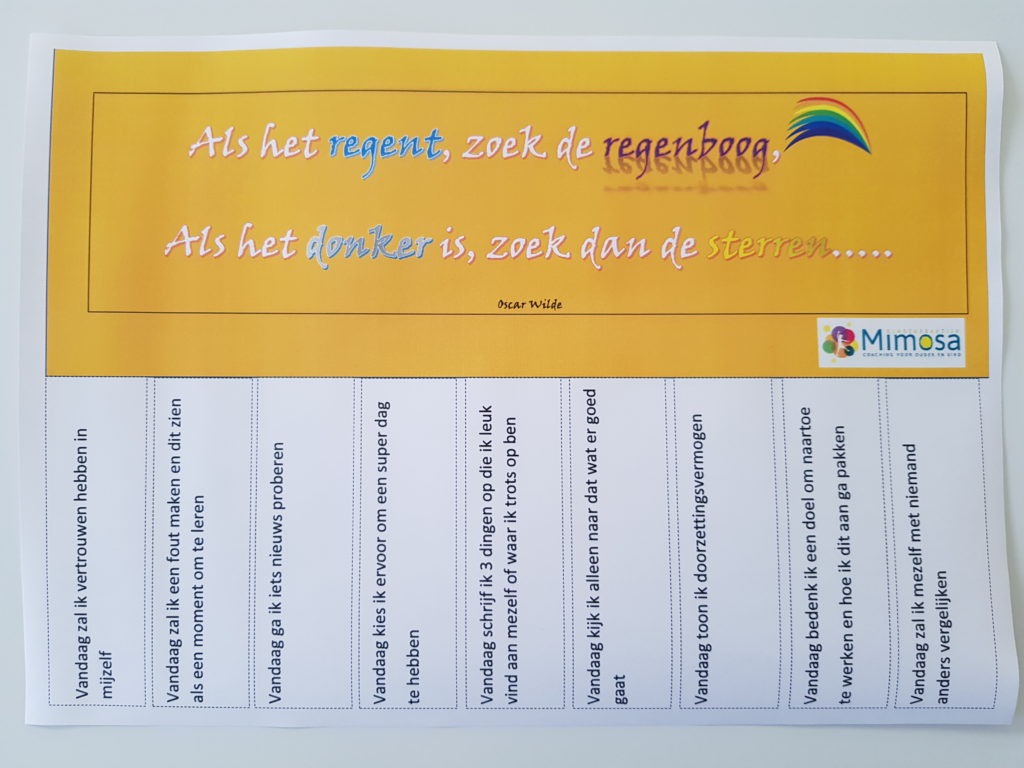 Als het regent, zoek de regenboog,
Als het donker is, zoek dan de sterren.....
Oscar Wilde
Mimosa
COACHING VOOR OUDER EN KIND
Vandaag zal ik vertrouwen hebben in
mijzelf
Vandaag zal ik een fout maken en dit zien
als een moment om te leren
Vandaag ga ik iets nieuws proberen
Vandaag kies ik ervoor om een super dag
te hebben
Vandaag schrijf ik 3 dingen op die ik leuk
vind aan mezelf of waar ik trots op ben
Vandaag kijk ik alleen naar dat wat er goed
gaat
Vandaag toon ik doorzettingsvermogen
Vandaag bedenk ik een doel om naartoe
te werken en hoe ik dit aan ga pakken
Vandaag zal ik mezelf met niemand
anders vergelijken